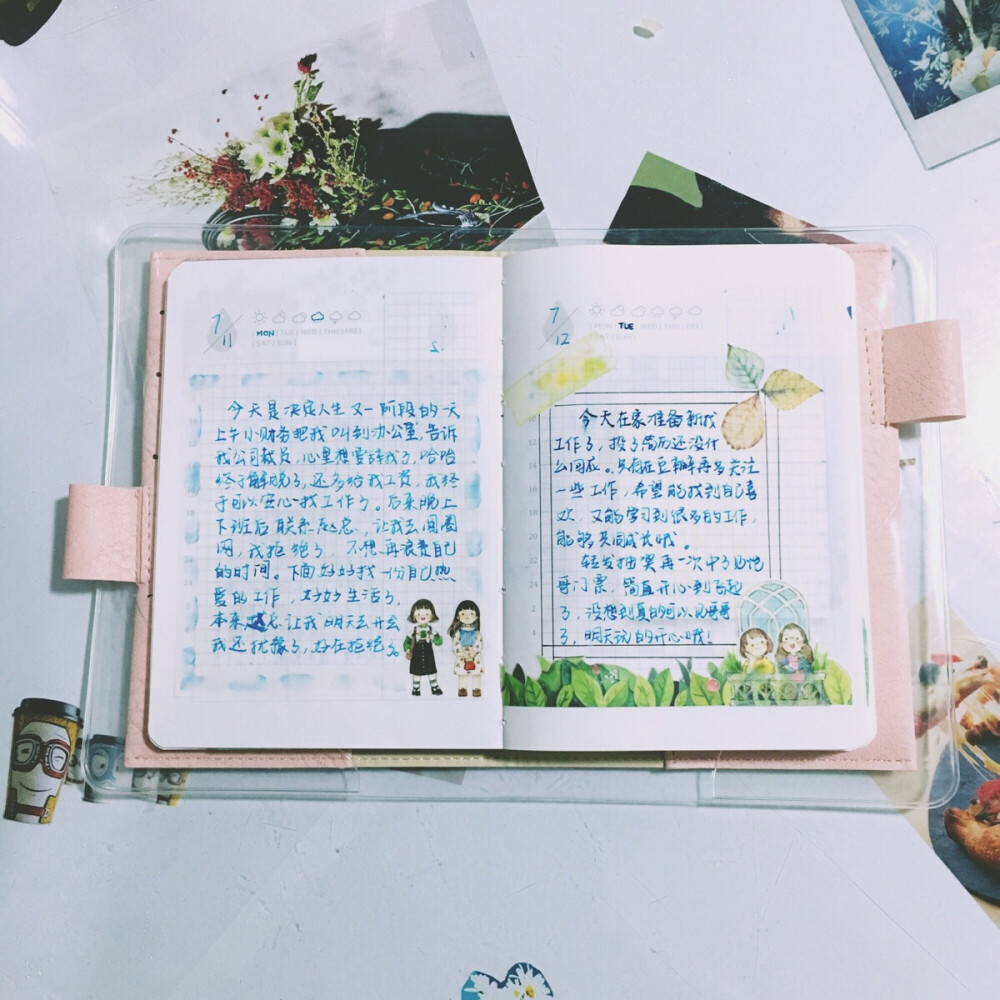 7/11
MON|TUE|WED|THU|FRI|
|SAT|SUN|
今天是决定人生又一阶段的一天
上午小财务把我叫到办公室,告诉
我公司裁员,心里想要辞我了,哈哈
终于解脱了,还多给我工资,我终
于可以安心找工作了。后来晚上
下班后联系总,让我去闺圈
网,我拒绝了,不想再浪费自己
的时间。下面好好找一份自己热
爱的工作,好好生活了,
本来总让我明天去开会
我还犹豫了,好在拒绝。
7/12
|MON|TUE|WED|THU|FRI|
|SAT|SUN|
今天在家准备新找
工作了,投了简历还没什
么回应。在豆瓣再多关注
一些工作,希望能找到自己喜
欢,又能学习到很多的工作,
能够共同成长哦。
轻发抽奖再一次中了见他
哥门票,简直开心到飞起
了,没想到真的可以见哥哥
了,明天玩的开心哦!